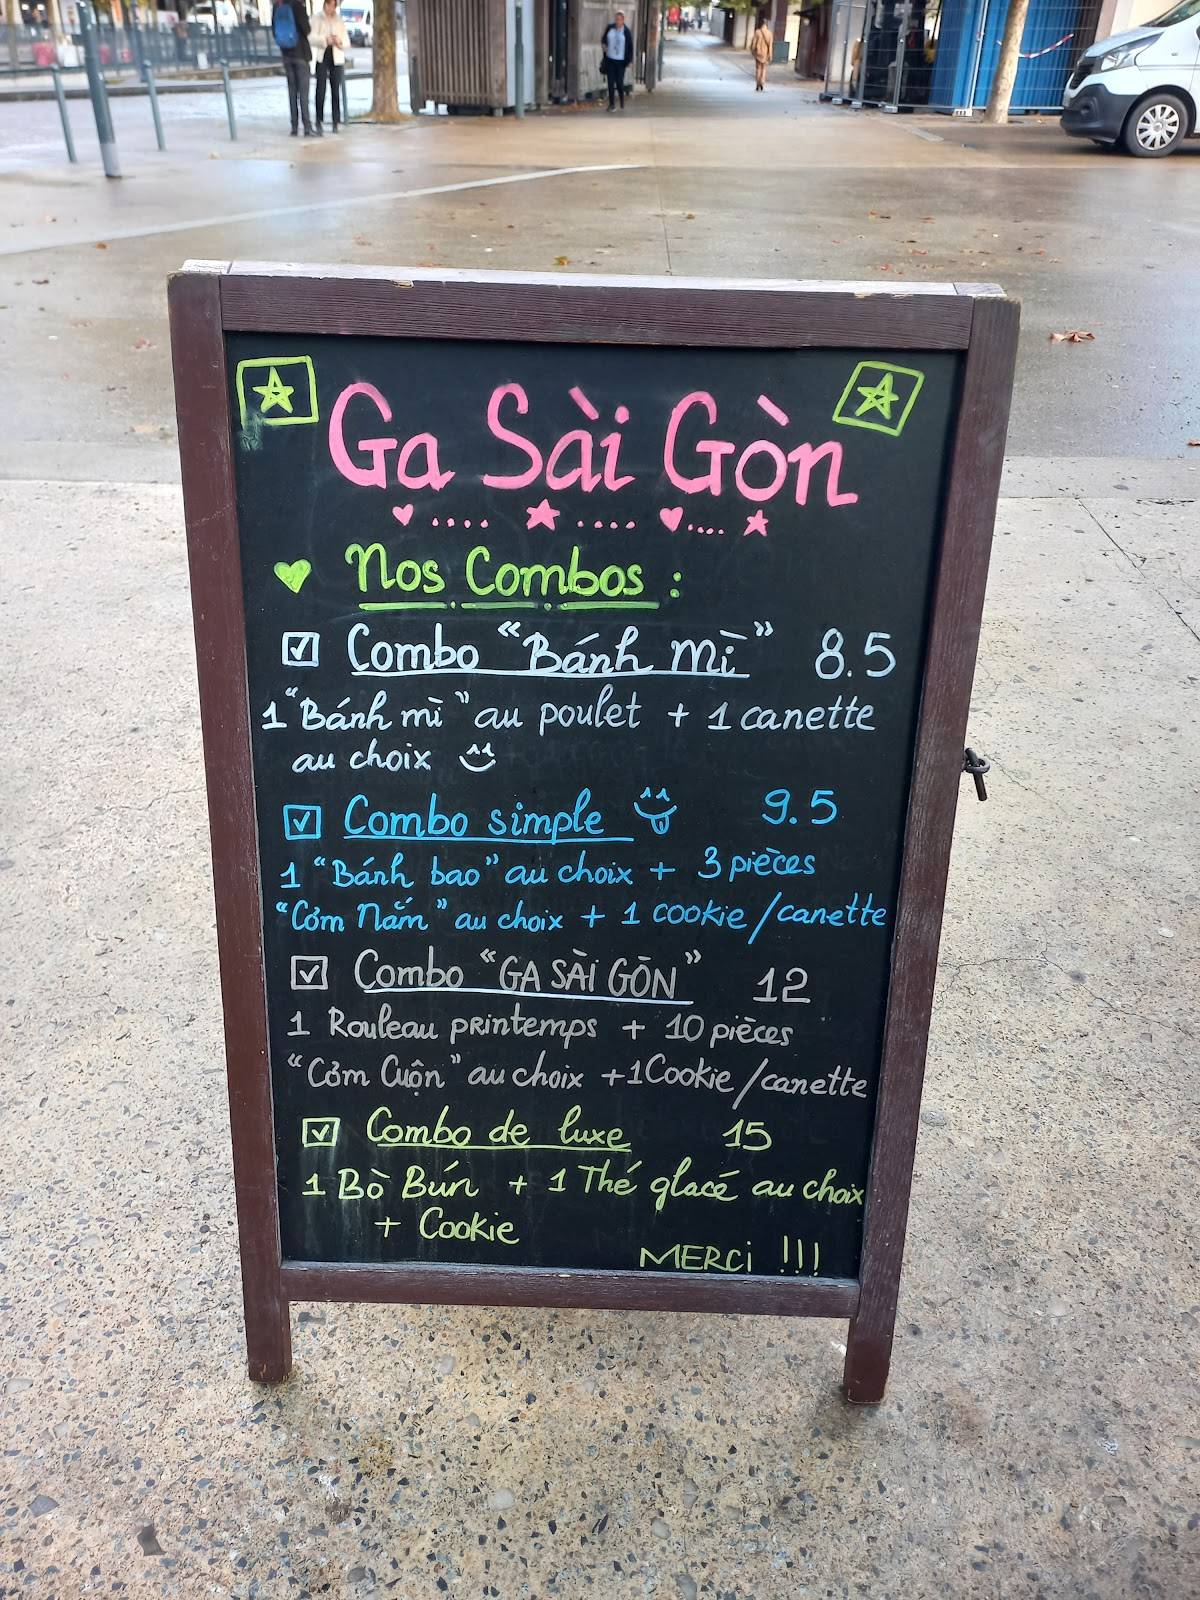 Ga Sài Gòn
Nos Combos :
Combo "Bánh mì" 8.5
1 "Bánh mì" au poulet + 1 canette
au choix
Combo simple 9.5
1 "Bánh bao" au choix + 3 pièces
"Cơm Nắm" au choix + 1 cookie/canette
Combo "GA SÀI GÒN" 12
1 Rouleau printemps + 10 pièces
"Cơm Cuộn" au choix +1Cookie/canette
Combo de luxe 15
1 Bò Bún + 1 Thé glacé au choix
+ Cookie
MERCi !!!